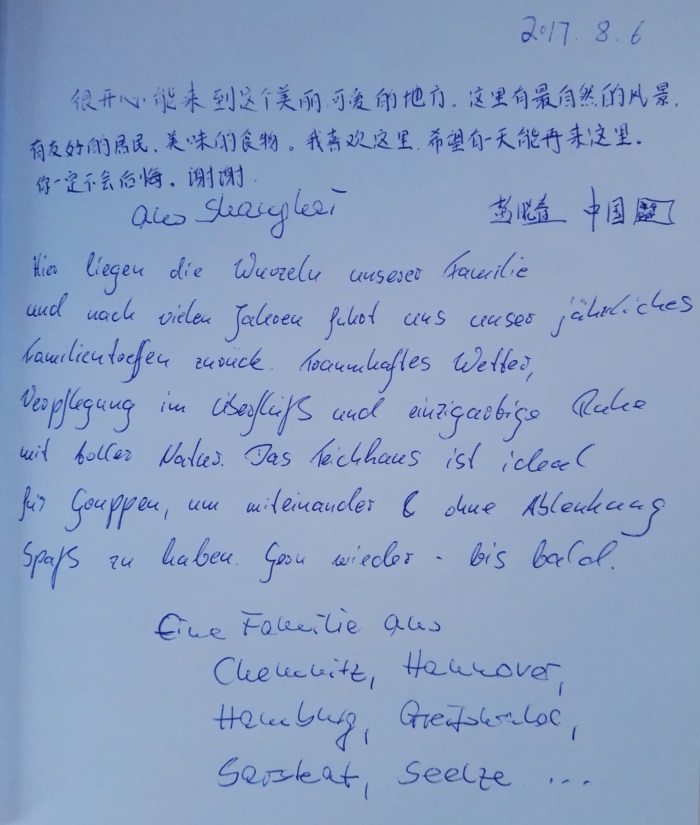 2017. 8. 6
很开心能来到这个美丽可爱的地方。这里有最自然的风景,
有友好的居民,美味的食物。我喜欢这里,希望有一天能再来这里。
你一定不会后悔。谢谢.
aus Shanghai
中国
Hier liegen die Wurzeln unserer Familie
und nach vielen Jahren führt uns unser jährliches
Familientreffen zurück. Traumhaftes Wetter,
Verpflegung im Überfluß und einzigartige Ruhe
mit toller Natur. Das Teichhaus ist ideal
für Gruppen, um miteinander & ohne Ablenkung
Spaß zu haben. Gern wieder - bis bald.
Eine Familie aus
Chemnitz, Hannover,
Hamburg, Greifswald,
Seelze ...